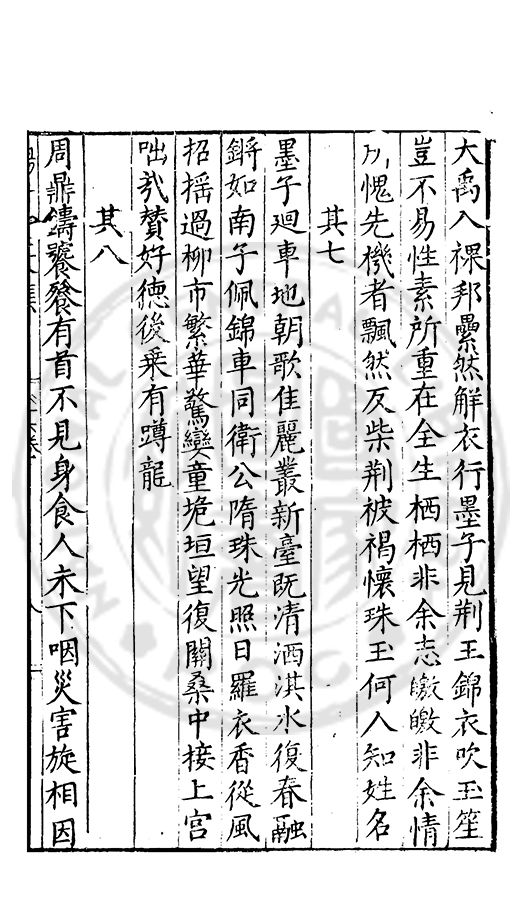 大禹入裸邦纍然解衣行墨子見荆王錦衣吹玉笙
豈不易性素所重在全生栖栖非余志皦皦非余情
所愧先機者飄然反柴荆被褐懷珠玉何人知姓名
其七
墨子廻車地朝歌佳麗叢新臺既清洒淇水復春融
鏘如南子佩錦車同衛公隋珠光照日羅衣香從風
招摇過柳市繁華驚孌童垝垣望復關桑中接上宮
咄哉賛好徳後乗有蹲龍
其八
周鼎鑄饕餮有首不見身食人未下咽災害旋相因